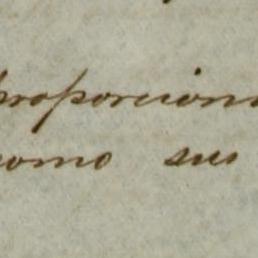 proporcion
como sus